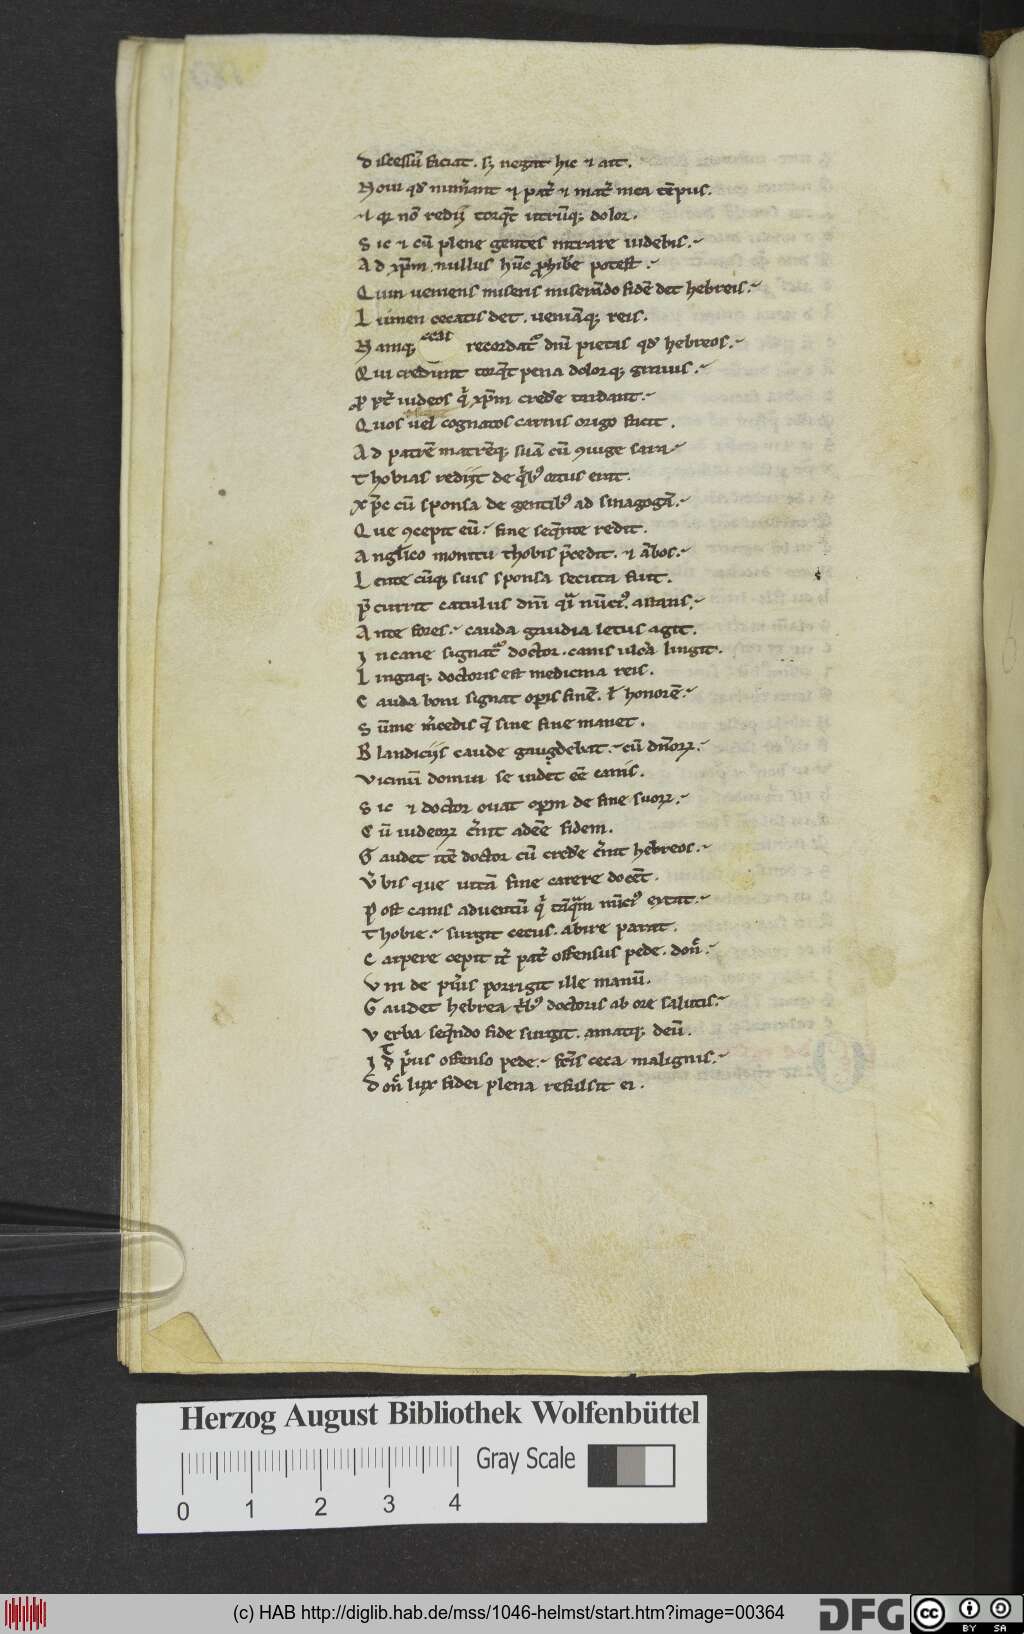 D iscessũ faciat. sꝫ negat hic ⁊ ait.
N oui qđ num̃ant ⁊ pat̃ ⁊ mat̃ mea tẽpus.
⁊ ꝗ nõ redij torq̃t utrũqꝫ dolor.
S ic ⁊ cũ plene gentes intrare uidebis.
A d xp̃m nullus hũc ꝓhib̃e potest.
Q uin ueniens miseris miserãdo fidẽ det hebreis.
L umen cecatis det. ueniãqꝫ reis.
N amqꝫ recordat᷒ dñi pietas qđ hebreos.
Q ui credunt torq̃t pena dolorqꝫ grauis.
ꝓ pt̃ iudeos q̇ xp̃m cred̃e tardant.
Q uos uel cognatos carnis origo facit.
A d patrẽ matrẽqꝫ suã cũ ꝯiuge sara
T hobias redijt de q̇bꝰ ortus erat.
X p̃c cũ sponsa de gentibꝰ ad sinagogã.
Q ue ꝯcepit eũ. fine seq̃nte redit.
A ngl̃ico monitu thobis p̃cedit. ⁊ ãbos.
L ente cũqꝫ suis sponsa secuta fuit.
p̃ currit catulus dñi qͣi nũciꝰ astans.
A nte fores. cauda gaudia letus agit.
I n cane signat᷒ doctor. canis ulc̃a lingit.
L ingaqꝫ doctoris est medicina reis.
C auda boni signat op̃is finẽ. ł honorẽ.
S ũme m̃cedis q̃ sine fine manet.
B landicijs caude gaugdebat. cũ dñoꝝ.
V icinũ domui se uidet eẽ canis.
S ic ⁊ doctor ouat opm de fine suoꝝ.
C ũ iudeoꝝ c̃nit adeẽe fidem.
G audet itẽ doctor cũ cred̃e c̃nit hebreos.
V̓ bis que uitã fine carere docẽt.
P ost canis aduentũ q̇ tãq̃m nũciꝰ extat.
T hobie. surgit cecus. abire parat.
C arpere cepit it̃ pat̃ offensus pede. don̾.
V ni de pu̾is porrigit ille manũ.
G audet hebrea t̾bꝰ doctoris ab ore salutis.
V erba seq̃ndo fide surgit. amatqꝫ deũ.
I đ p̾us offenso pede. ft̾is ceca malignis.
D on̾ lux fidei plena refulsit ei.
Herzog August Bibliothek Wolfenbüttel
Gray Scale
0 1 2 3 4
(c) HAB http://diglib.hab.de/mss/1046-helmst/start.htm?image=00364
DFG
cc BY SA